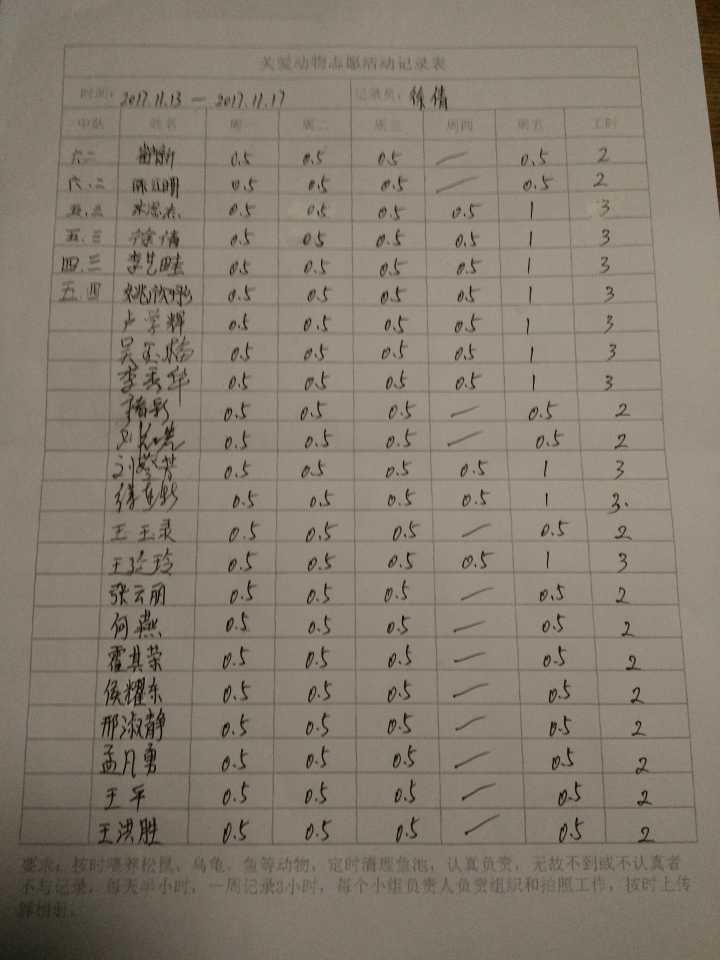 关爱动物志愿活动记录表
时间：2017.11.13 — 2017.11.17 记录员：徐倩
中队 姓名 周一 周二 周三 周四 周五 工时
六二 0.5 0.5 0.5 — 0.5 2
六.二 0.5 0.5 0.5 — 0.5 2
五.三 0.5 0.5 0.5 0.5 1 3
五.三 徐倩 0.5 0.5 0.5 0.5 1 3
四.三 李艺畦 0.5 0.5 0.5 0.5 1 3
五.四 0.5 0.5 0.5 0.5 1 3
卢学辉 0.5 0.5 0.5 0.5 1 3
吴 0.5 0.5 0.5 0.5 1 3
李秀华 0.5 0.5 0.5 0.5 1 3
0.5 0.5 0.5 — 0.5 2
0.5 0.5 0.5 — 0.5 2
刘 0.5 0.5 0.5 0.5 1 3
0.5 0.5 0.5 0.5 1 3.
王玉录 0.5 0.5 0.5 — 0.5 2
王玲玲 0.5 0.5 0.5 0.5 1 3
张云丽 0.5 0.5 0.5 — 0.5 2
何燕 0.5 0.5 0.5 — 0.5 2
霍其荣 0.5 0.5 0.5 — 0.5 2
侯耀东 0.5 0.5 0.5 — 0.5 2
邢淑静 0.5 0.5 0.5 — 0.5 2
孟凡勇 0.5 0.5 0.5 — 0.5 2
王平 0.5 0.5 0.5 — 0.5 2
王洪胜 0.5 0.5 0.5 — 0.5 2
要求：按时喂养松鼠、乌龟、鱼等动物，定时清理鱼池，认真负责，无故不到或不认真者
不与记录，每天半小时，一周记录3小时，每个小组负责人负责组织和拍照工作，按时上传
群相册。